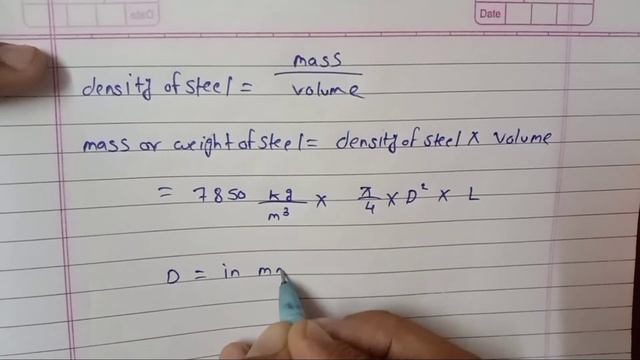 Date
Date
density of steel = mass / volume
mass or weight of steel = density of steel × volume
= 7850 kg/m³ × π/4 × D² × L
D = in mm